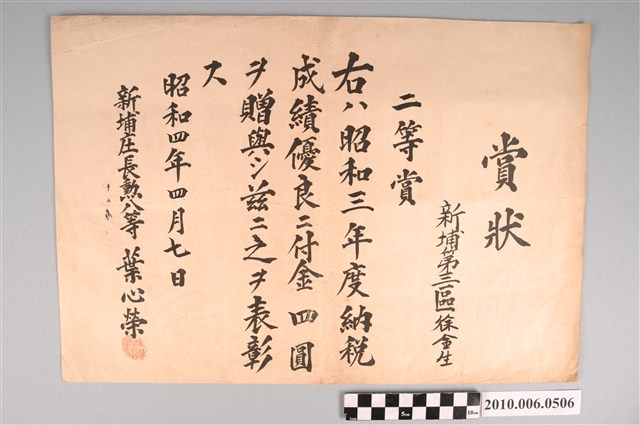 賞狀
新埔第三區徐金生
二等賞
右ハ昭和三年度納税
成績優良ニ付金四圓
ヲ贈與シ茲ニ之ヲ表彰
ス
昭和四年四月七日
新埔庄長勲八等葉心榮
5cm
10cm
2010.006.0506